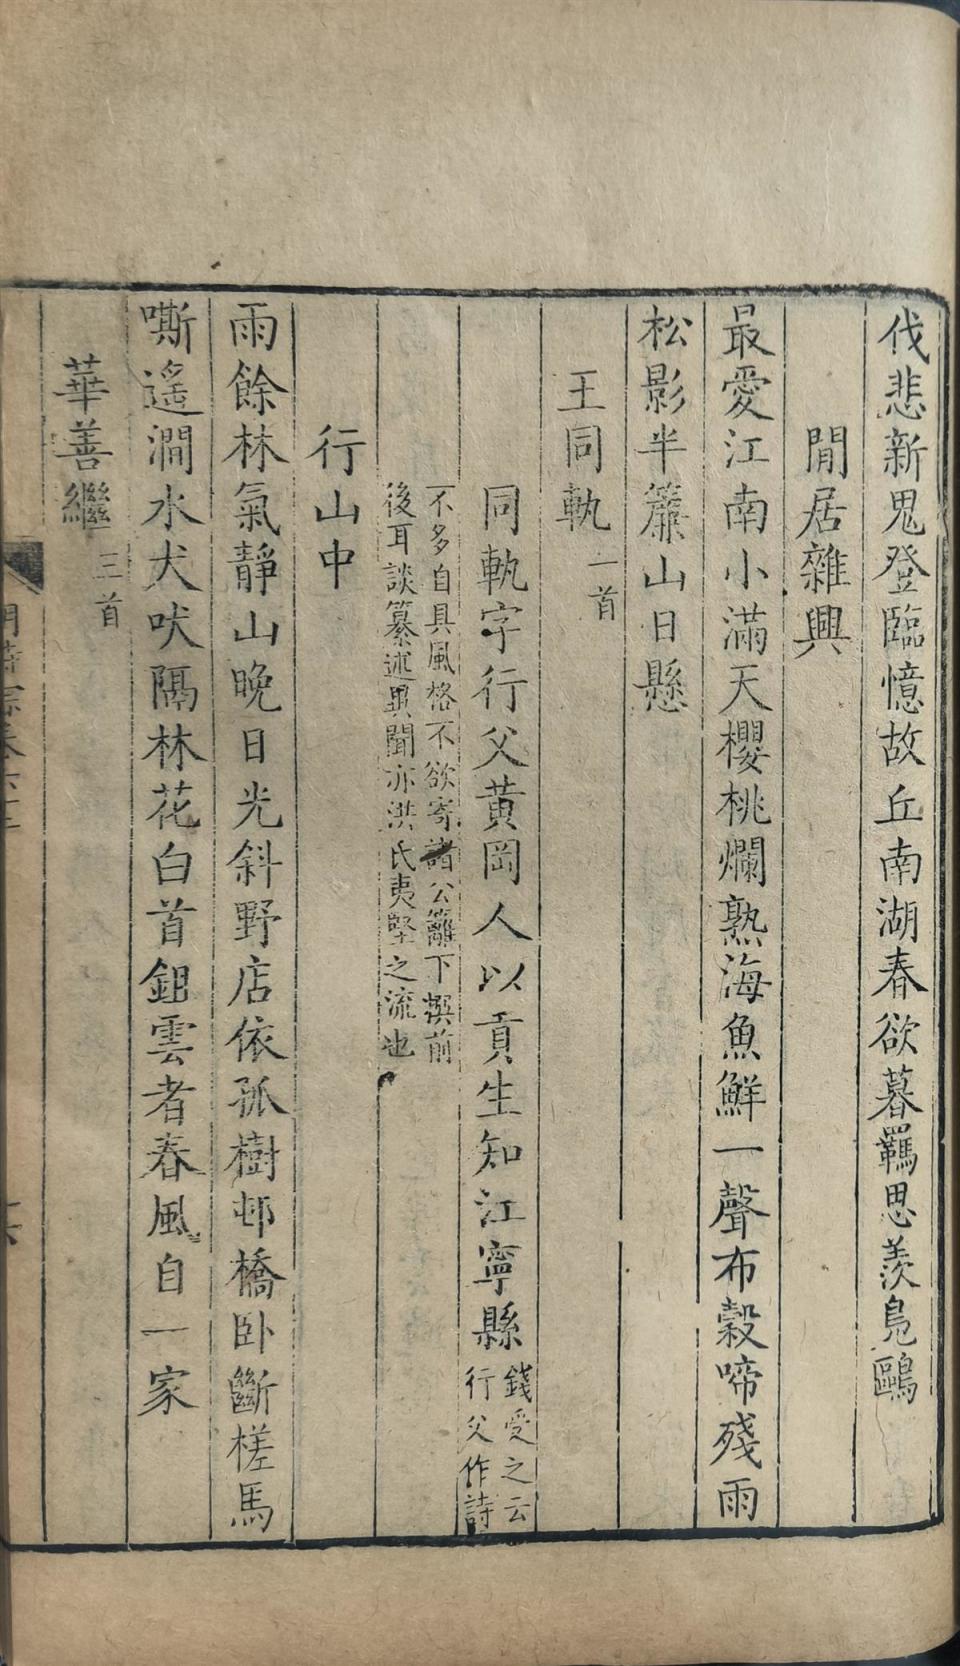 伐悲新鬼登臨憶故丘南湖春欲暮羈思羨鳧鷗
閒居雜興
最愛江南小滿天櫻桃爛熟海魚鮮一聲布穀啼殘雨
松影半簾山日懸
王同軌一首
同軌字行父黃岡人以貢生知江寧縣錢受之云行父作詩
不多自具風格不欲寄諸公籬下撰前
後耳談纂述異聞亦洪氏夷堅之流也
行山中
雨餘林氣靜山晚日光斜野店依孤樹邨橋卧斷槎馬
嘶遙澗水犬吠隔林花白首鉏雲者春風自一家
華善繼三首